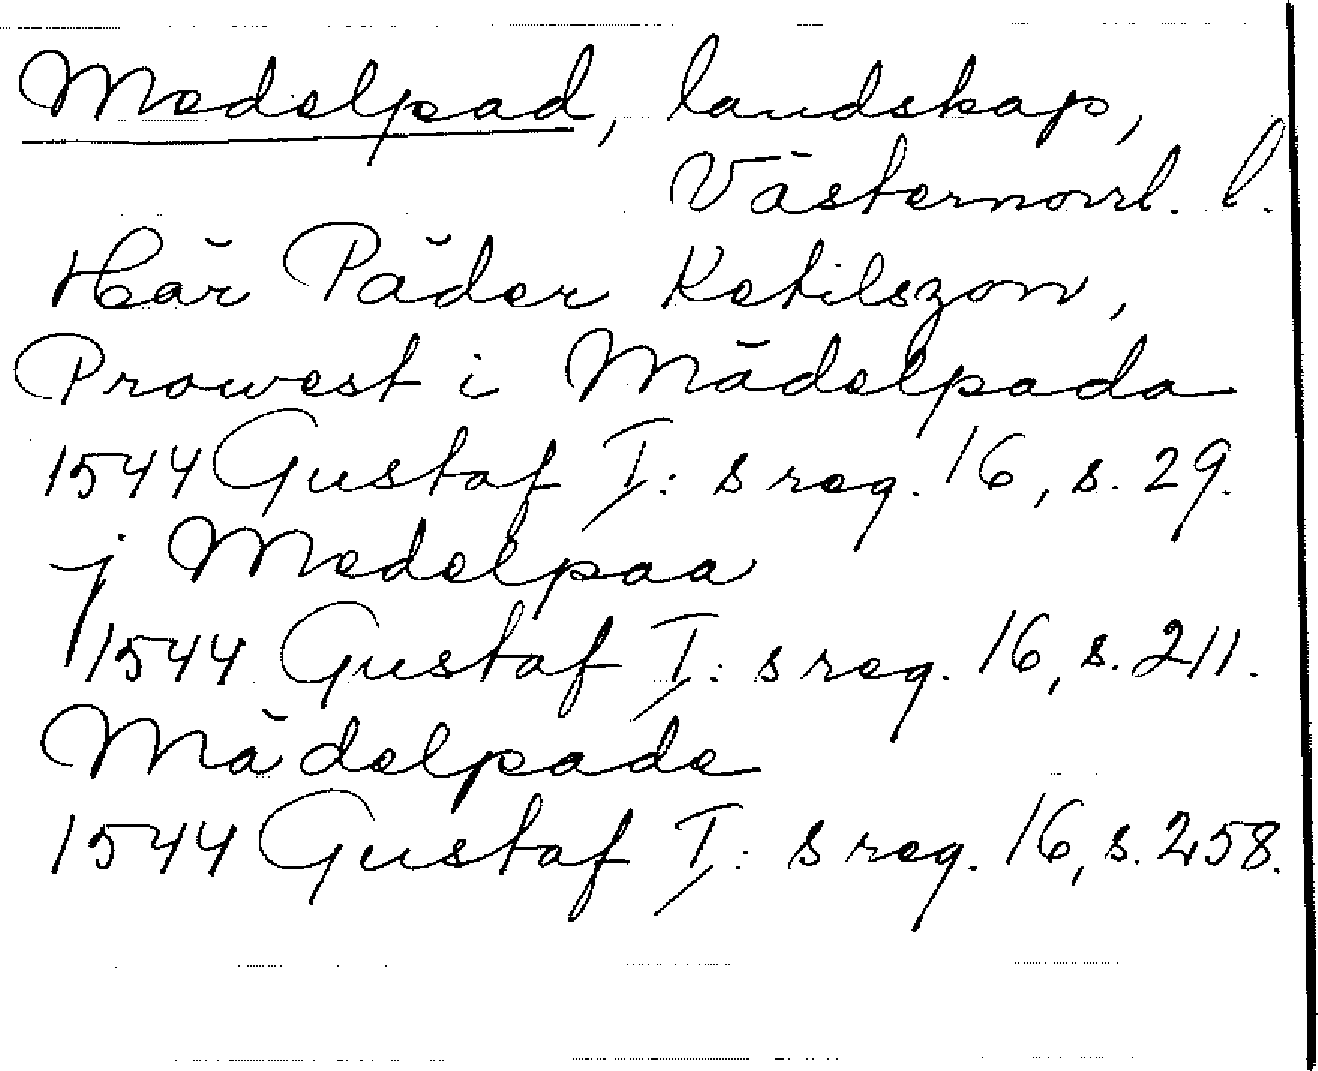 Medelpad, landskap,
Västernorrl. l.
Här Päder Ketilszon,
Prowest i Mädelpada
1544 Gustaf I: s reg. 16, s. 29.
j Medelpaa
1544 Gustaf I: s reg. 16, s. 211.
Mädelpade
1544 Gustaf I: s reg. 16, s. 258.